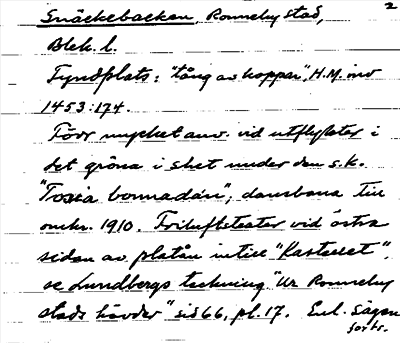 2
Snäckebacken, Ronneby stad,
Blek. l.
Fyndplats: "tång av koppar", H.M. inv
1453:174.
Förr mycket anv. vid utflykter i
det gröna i shet under den s.k.
bonnadan", dansbana till
omkr. 1910. Friluftsteater vid östra
sidan av platån intill "Kastellet",
se Lundbergs teckning "Ur Ronneby
stads hävder" sid 66, pl. 17. Enl. sägen
forts.